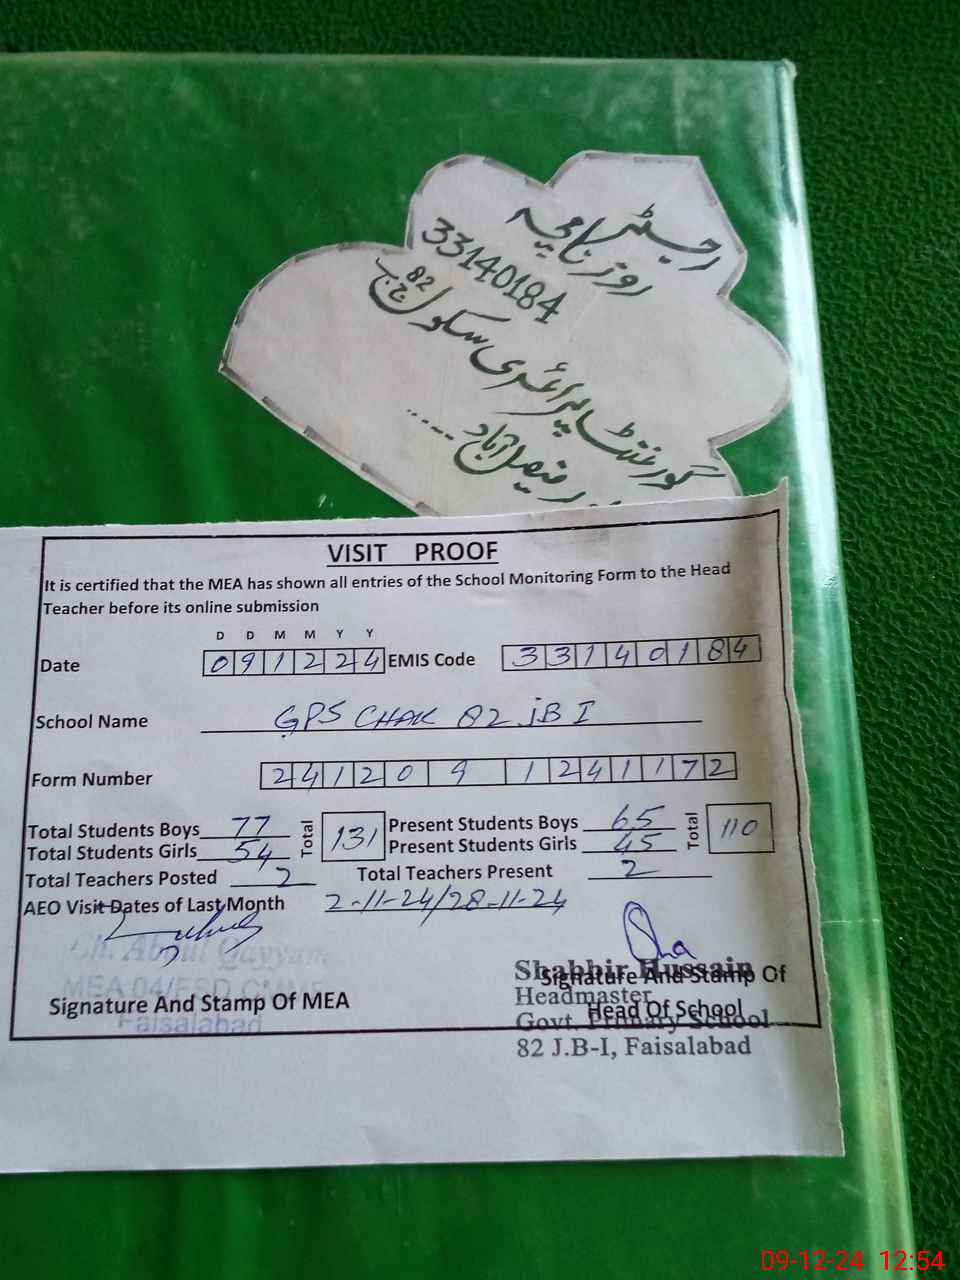 رجسٹر
روزنامچہ
33140184
گورنمنٹ پرائمری سکول 82 ج ب
فیصل آباد
VISIT PROOF
It is certified that the MEA has shown all entries of the School Monitoring Form to the Head
Teacher before its online submission
D D M M Y Y
Date 091224 EMIS Code 33140184
School Name GPS CHAK 82 JB I
Form Number 24120 9 1241172
Total Students Boys 77 Total 131 Present Students Boys 65 Total 110
Total Students Girls 54 Present Students Girls 45
Total Teachers Posted 2 Total Teachers Present 2
AEO Visit Dates of Last Month 2-11-24/28-11-24
Ch. Abdul Qayyum
MEA 04/FSD CMMF
Faisalabad
Signature And Stamp Of MEA
Sha
Signature And Stamp Of
Head Of School
Shabbir Hussain
Headmaster
Govt. Primary School
82 J.B-I, Faisalabad
09-12-24 12:54